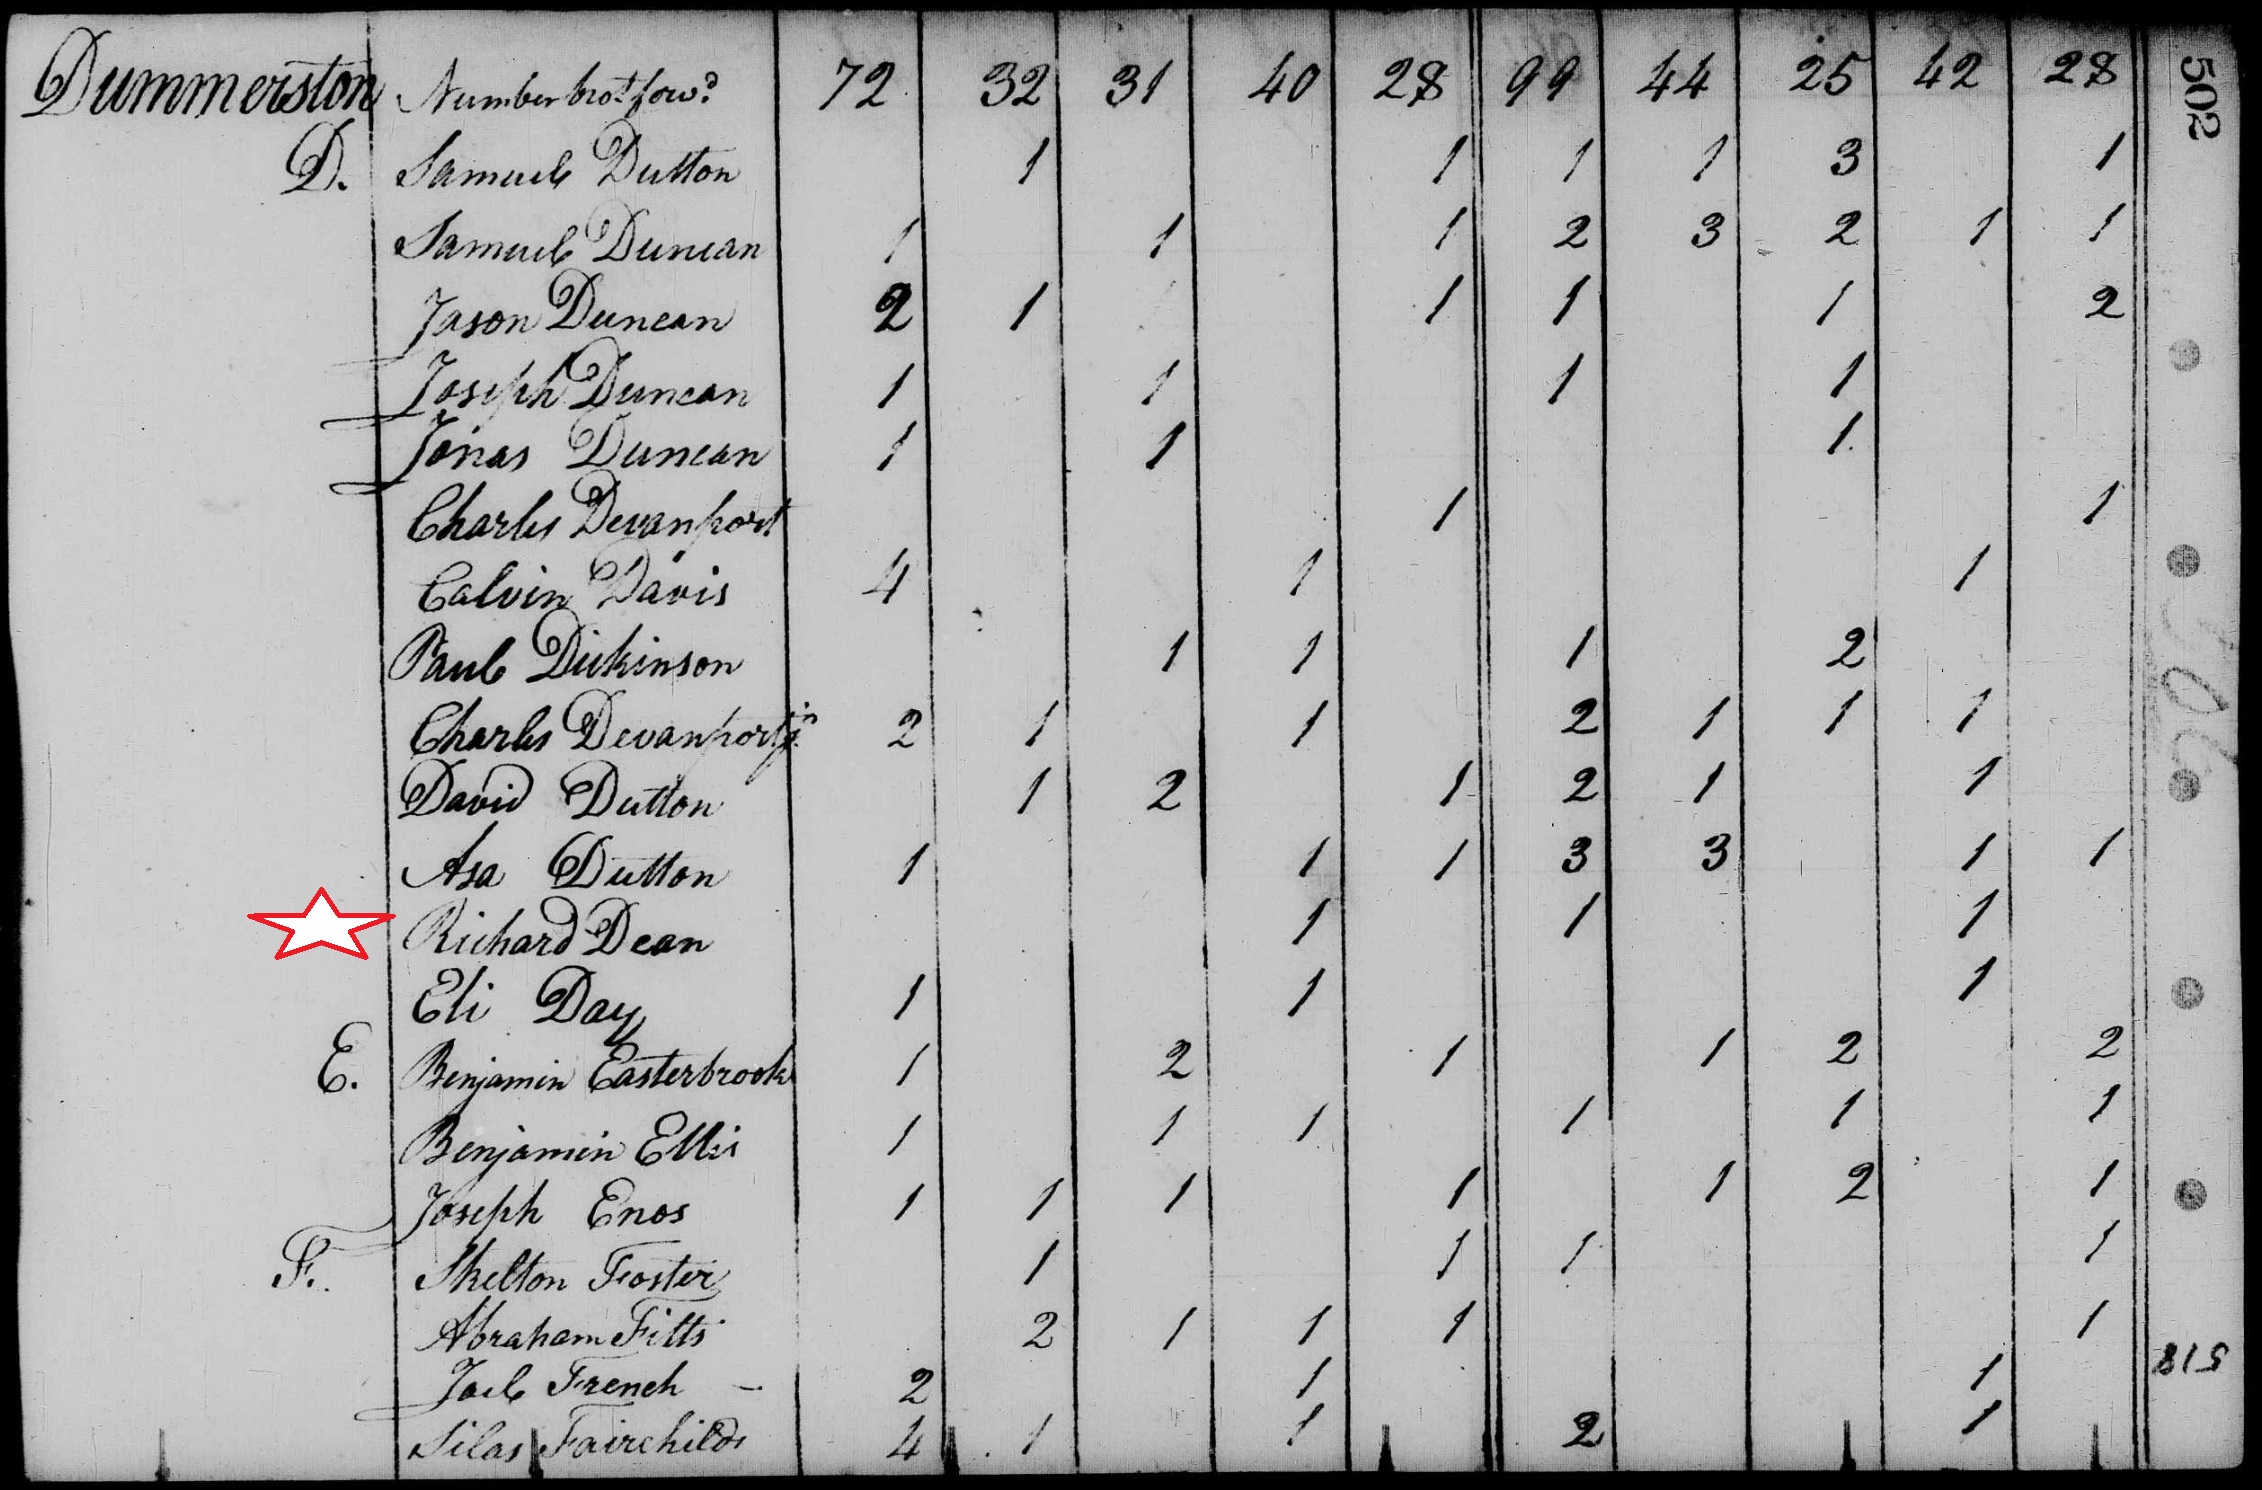 Dummerston Number brot forwd 72 32 31 40 28 99 44 25 42 28
D. Samuel Dutton 1 1 1 1 3 1
Samuel Duncan 1 1 1 2 3 2 1 1
Jason Duncan 2 1 1 1 1 2
Joseph Duncan 1 1 1 1
Jonas Duncan 1 1 1
Charles Devanport 1 1
Calvin Davis 4 1 1
Paul Dickinson 1 1 1 2
Charles Devanport jr 2 1 1 2 1 1 1
David Dutton 1 2 1 2 1 1
Asa Dutton 1 1 1 3 3 1 1
Richard Dean 1 1 1
Eli Day 1 1 1
E. Benjamin Easterbrook 1 2 1 1 2 2
Benjamin Ellis 1 1 1 1 1 1
Joseph Enos 1 1 1 1 1 2 1
F. Skelton Foster 1 1 1 1
Abraham Fitts 2 1 1 1 1
Joel French – 2 1 1
Silas Fairchilds 4 1 1 2 1
502
518